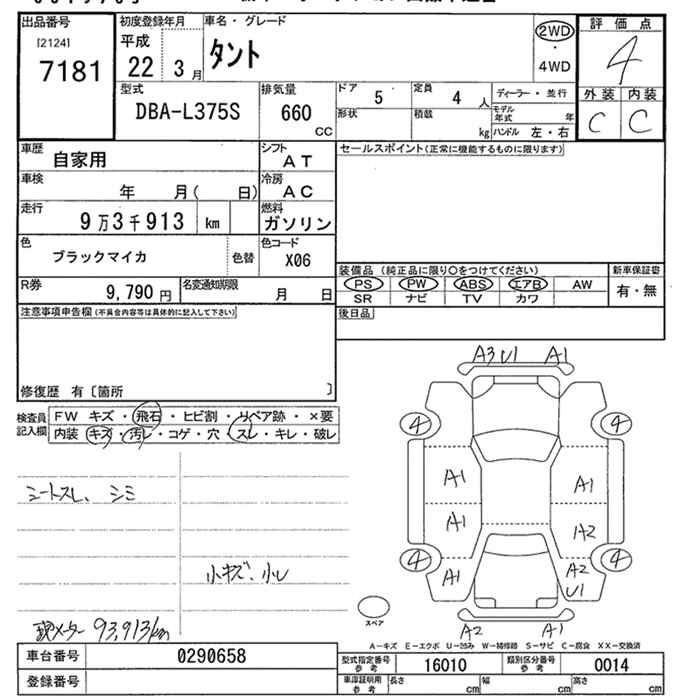 出品番号
[2124]
7181
初度登録年月
平成
22 3月
車名・グレード
タント
2WD
・
4WD
評価点
4
外装 内装
C C
型式
DBA-L375S
排気量
660
CC
ドア 5
定員 4 人
ディーラー・並行
形状
積載 kg
モデル年式 年
ハンドル 左・右
車歴 自家用
シフト AT
セールスポイント(正常に機能するものに限ります)
車検 年 月( 日)
冷房 AC
走行 9万3千913 km
燃料 ガソリン
色 ブラックマイカ
色替
色コード X06
装備品 (純正品に限り○をつけてください)
新車保証書
PS PW ABS エアB AW
有・無
SR ナビ TV カワ
R券 9,790 円
名変通知期限 月 日
後日品
注意事項申告欄(不具合内容等は具体的に記入して下さい)
修復歴 有〔箇所 〕
検査員記入欄
FW キズ・飛石・ヒビ割・リペア跡・×要
内装 キズ・汚レ・コゲ・穴・スレ・キレ・破レ
シートスレ、シミ
小キズ、小レ
メーター 93,913km
A3 U1 A1
4 4
A1 A1
A1 A2
4 4
A1 A2 U1
A2 A1
スペア
A-キズ E-エクボ U-凹み W-補修跡 S-サビ C-腐食 XX-交換済
車台番号 0290658
型式指定番号参考 16010
類別区分番号参考 0014
登録番号
車庫証明用参考 長さ cm 幅 cm 高さ cm